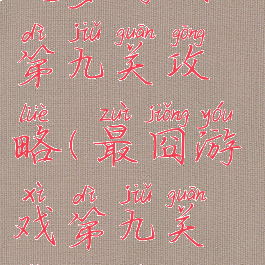 dì jiǔ guān gōng
第九关攻
lüè zuì jiǒng yóu
略(最囧游
xì dì jiǔ guān
戏第九关